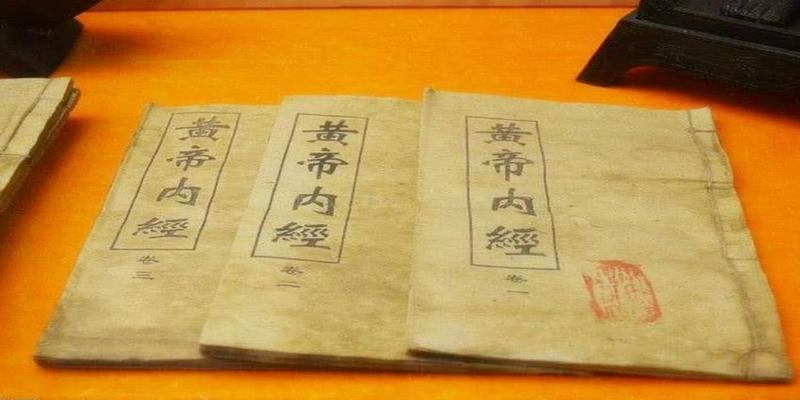 黃帝內經
卷三
黃帝內經
卷二
黃帝內經
卷一